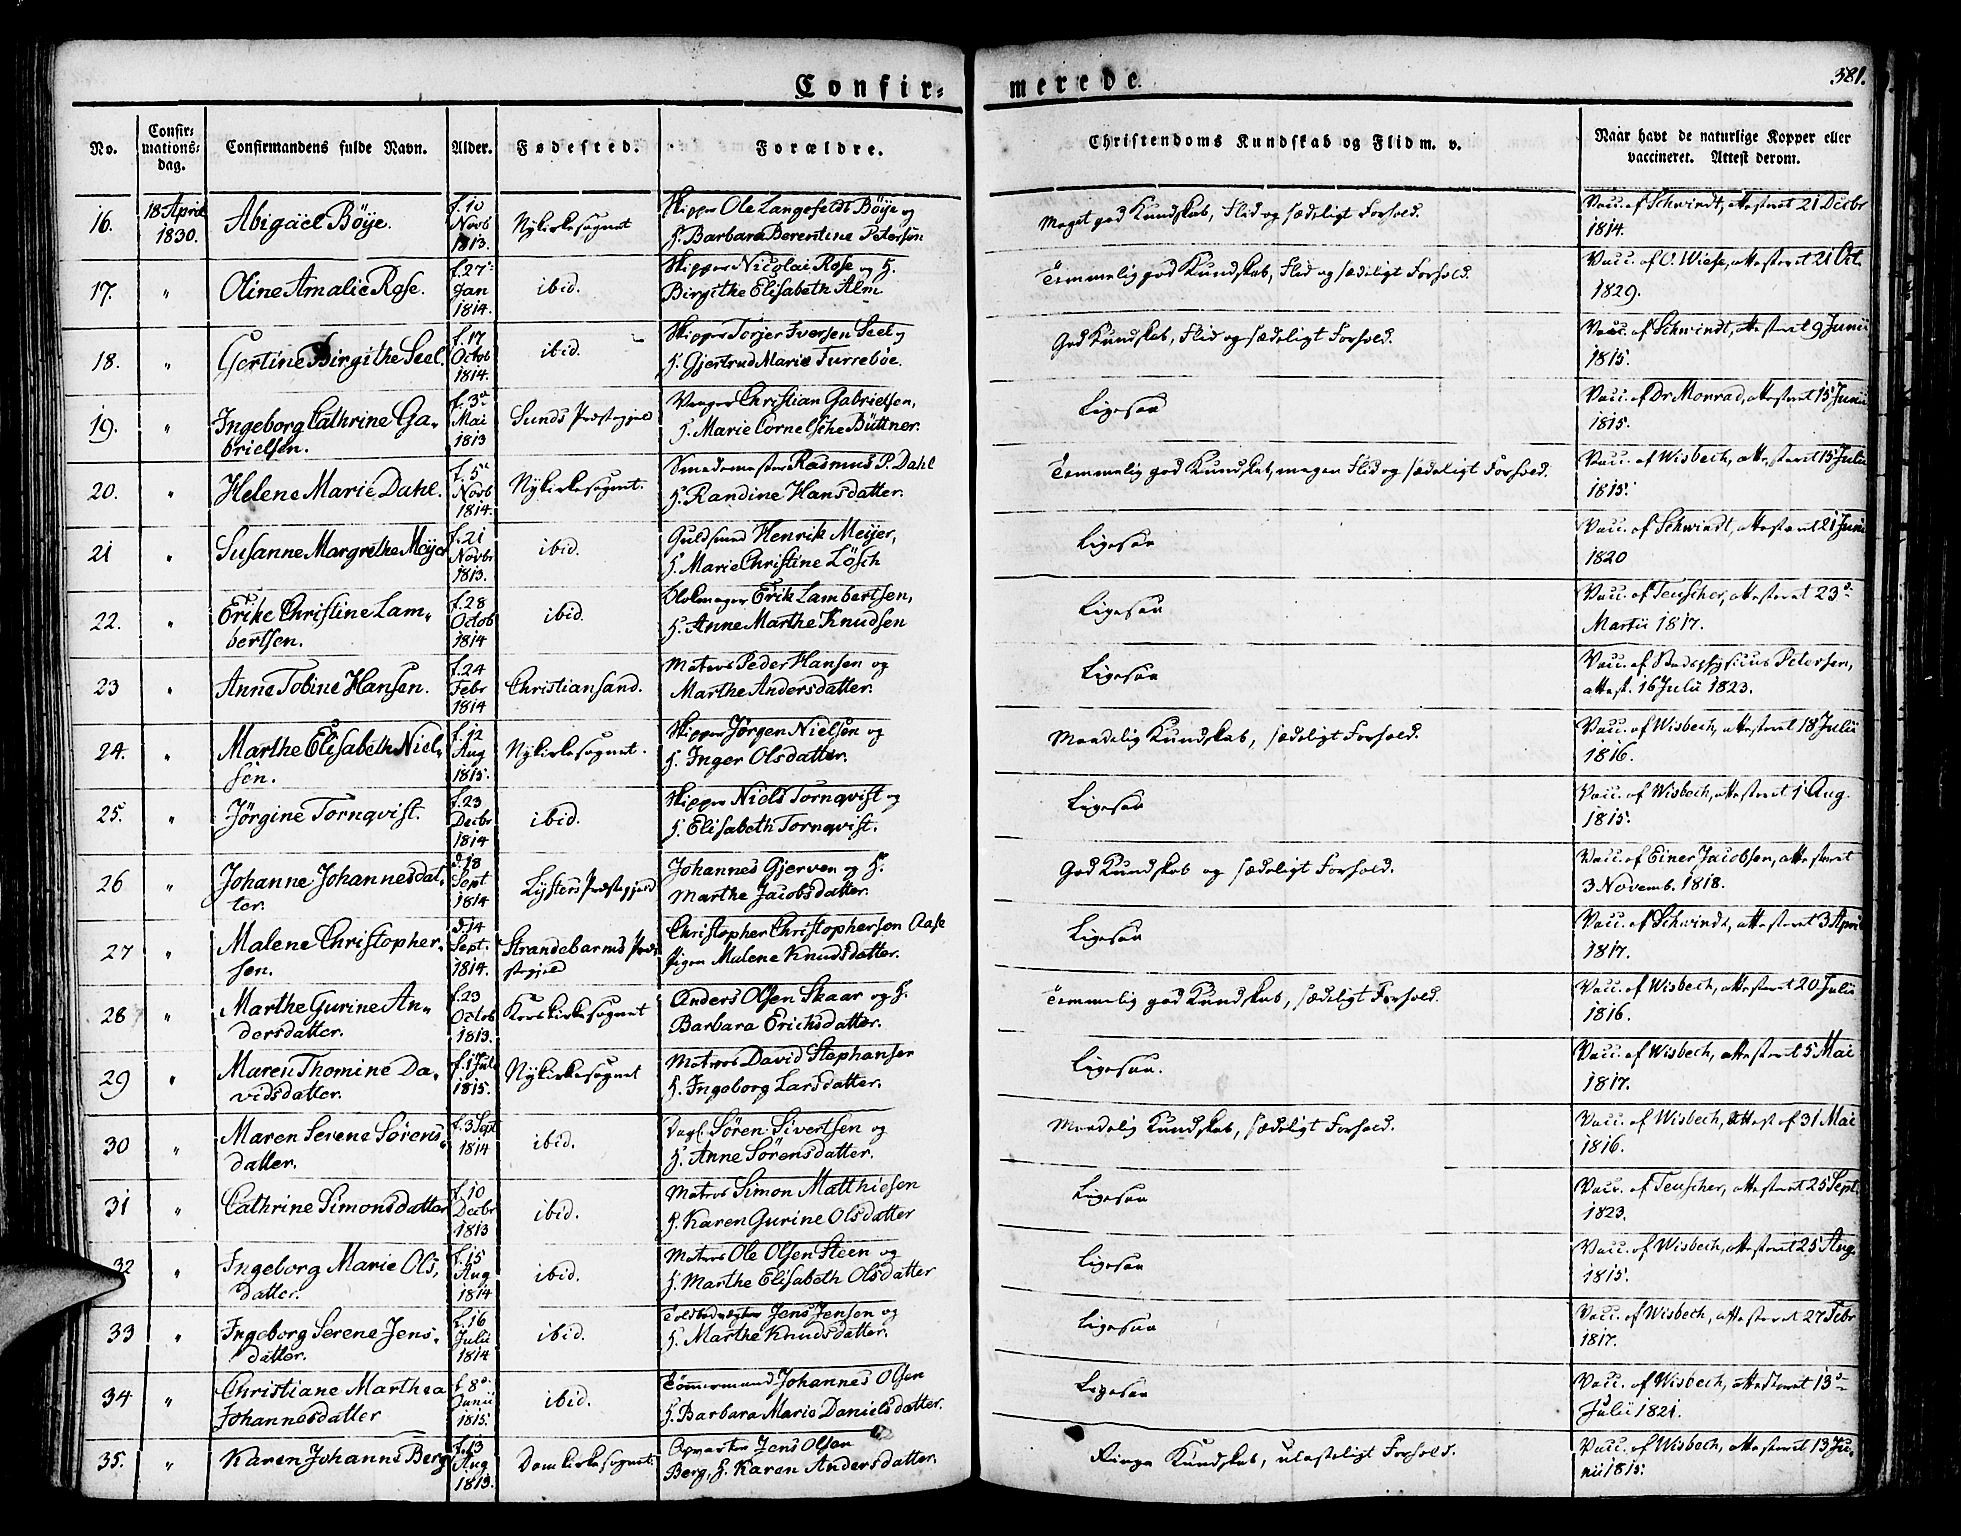 Confir-
merede.
381.
No.
Confir-
mations-
dag.
Confirmandens fulde Navn.
Alder.
Fødested.
Forældre.
Christendoms Kundskab og Flid m. v.
Naar havt de naturlige Kopper eller
vaccineret. Attest derom.
16. 18 April 1830. Abigaël Böye. f. 10 Novb 1813. Nykirkesognet Skipper Ole Langefeldt Böye og H. Barbara Berentine Petersen Meget god Kundskab, Flid og sædeligt Forhold. Vacc. af Schwindt, attesteret 21 Decbr 1814.
17. " Oline Amalie Rose. f. 27 Jan 1814. ibid. Skipper Nicolai Rose og H. Birgithe Elisabeth Alm Temmelig god Kundskab, Flid og sædeligt Forhold. Vacc. af O. Wiese, attesteret 21 Oct. 1829.
18. " Gertine Birgithe Seel. f. 17 Octob 1814. ibid. Skipper Torjer Iversen Seel og H. Gjertrud Marie Turreböe. God Kundskab, Flid og sædeligt Forhold. Vacc. af Schwindt, attesteret 9 Junii 1815.
19. " Ingeborg Cathrine Ga-
brielsen. f. 3 Mai 1813 Sunds Præstegjeld Christian Gabrielsen, H. Marie Cornelsche Büttner. Ligesaa Vacc. af Dr Monrad, attesteret 15 Junii 1815.
20. " Helene Marie Dahl. f. 5 Novb 1814. Nykirkesognet. Smedemester Rasmus P. Dahl H. Randine Hansdatter. Temmelig god Kundskab, megen Flid og sædeligt Forhold. Vacc. af Wisbech, attesteret 15 Julii 1815.
21 " Susanne Margrethe Meyer f. 21 Novbr 1813. ibid. Guldsmed Henrik Meijer, H. Marie Christine Lösch Ligesaa Vacc. af Schwindt, attesteret 21 Junii 1820
22. " Erike Christine Lam-
bertsen. f. 28 Octob 1814 ibid. Erik Lambertsen, H. Anne Marthe Knudsen Ligesaa Vacc. af Teuscher, attesteret 23 Martii 1817.
23 " Anne Tobine Hansen. f. 24 Febr 1814 Christiansand. Matros Peder Hansen og Marthe Andersdatter. Ligesaa Vacc. af Stadsphysicus Petersen, attest. 16 Julii 1823.
24. " Marthe Elisabeth Niel-
sen. f. 12 Aug 1815. Nykirkesognet. Skipper Jørgen Nielsen og H. Inger Olsdatter. Maadelig Kundskab, sædeligt Forhold. Vacc. af Wisbech, attesteret 18 Julii 1816.
25. " Jörgine Tornqvist. f. 23 Decbr 1814 ibid. Skipper Niels Tornqvist og H. Elisabeth Tornqvist. Ligesaa Vacc. af Wisbech, attesteret 1 Aug. 1815.
26 " Johanne Johannesdat-
ter. d. 18 Sept 1814 Lysters Præstegjeld Johannes Gjerven og H. Marthe Jacobsdatter. God Kundskab og sædeligt Forhold. Vacc. af Einer Jacobsen, attesteret 3 Novemb. 1818.
27 " Malene Christopher-
sen. d. 14 Sept. 1814. Strandebarms Præ-
stegjeld Christopher Christophersen Aase Pigen Malene Knudsdatter. Ligesaa Vacc. af Schwindt, attesteret 3 April 1817.
28 " Marthe Gurine An-
dersdatter. f. 23 Octob 1813. Korskirkesognet Anders Olsen Skaar og H. Barbara Erichsdatter. Temmelig god Kundskab, sædeligt Forhold. Vacc. af Wisbech, attesteret 20 Julii 1816.
29 " Maren Thomine Da-
vidsdatter. f. 1 Juli 1815. Nykirkesognet Matros David Stephansen H. Ingeborg Larsdatter. Ligesaa. Vacc. af Wisbech, attesteret 5 Mai 1817.
30 " Maren Serene Sørens-
datter. f. 3 Sept 1814 ibid. Sören Sivertsen og H. Anne Sörensdatter. Maadelig Kundskab, sædeligt Forhold. Vacc. af Wisbech, Attest af 31 Mai 1816.
31 " Cathrine Simonsdatter f. 10 Decbr 1813 ibid. Matros Simon Matthiesen H. Karen Gurine Olsdatter Ligesaa Vacc. af Teuscher, attesteret 25 Sept. 1823.
32 " Ingeborg Marie Ols-
datter. f. 15 Aug 1814 ibid. Matros Ole Olsen Steen og H. Marthe Elisabeth Olsdatter Ligesaa Vacc. af Wisbech, attesteret 25 Aug. 1815.
33 " Ingeborg Serene Jens-
datter. f. 16 Julii 1814 ibid. Jens Jensen og H. Marthe Knudsdatter. Ligesaa Vacc. af Wisbech, attesteret 27 Febr 1817.
34 " Christiane Marthea
Johannesdatter f. 8 Junii 1815. ibid. Tömmermand Johannes Olsen H. Barbara Marie Danielsdatter. Ligesaa Vacc. af Wisbech, attesteret 13 Julii 1821.
35. " Karen Johanns Berg f. 13 Aug 1813. Domkirkesognet. Opvarter Jens Olsen Berg, H. Karen Andersdatter. Ringe Kundskab, ulasteligt Forhold. Vacc. af Wisbech, attesteret 13 Ju-
nii 1815.